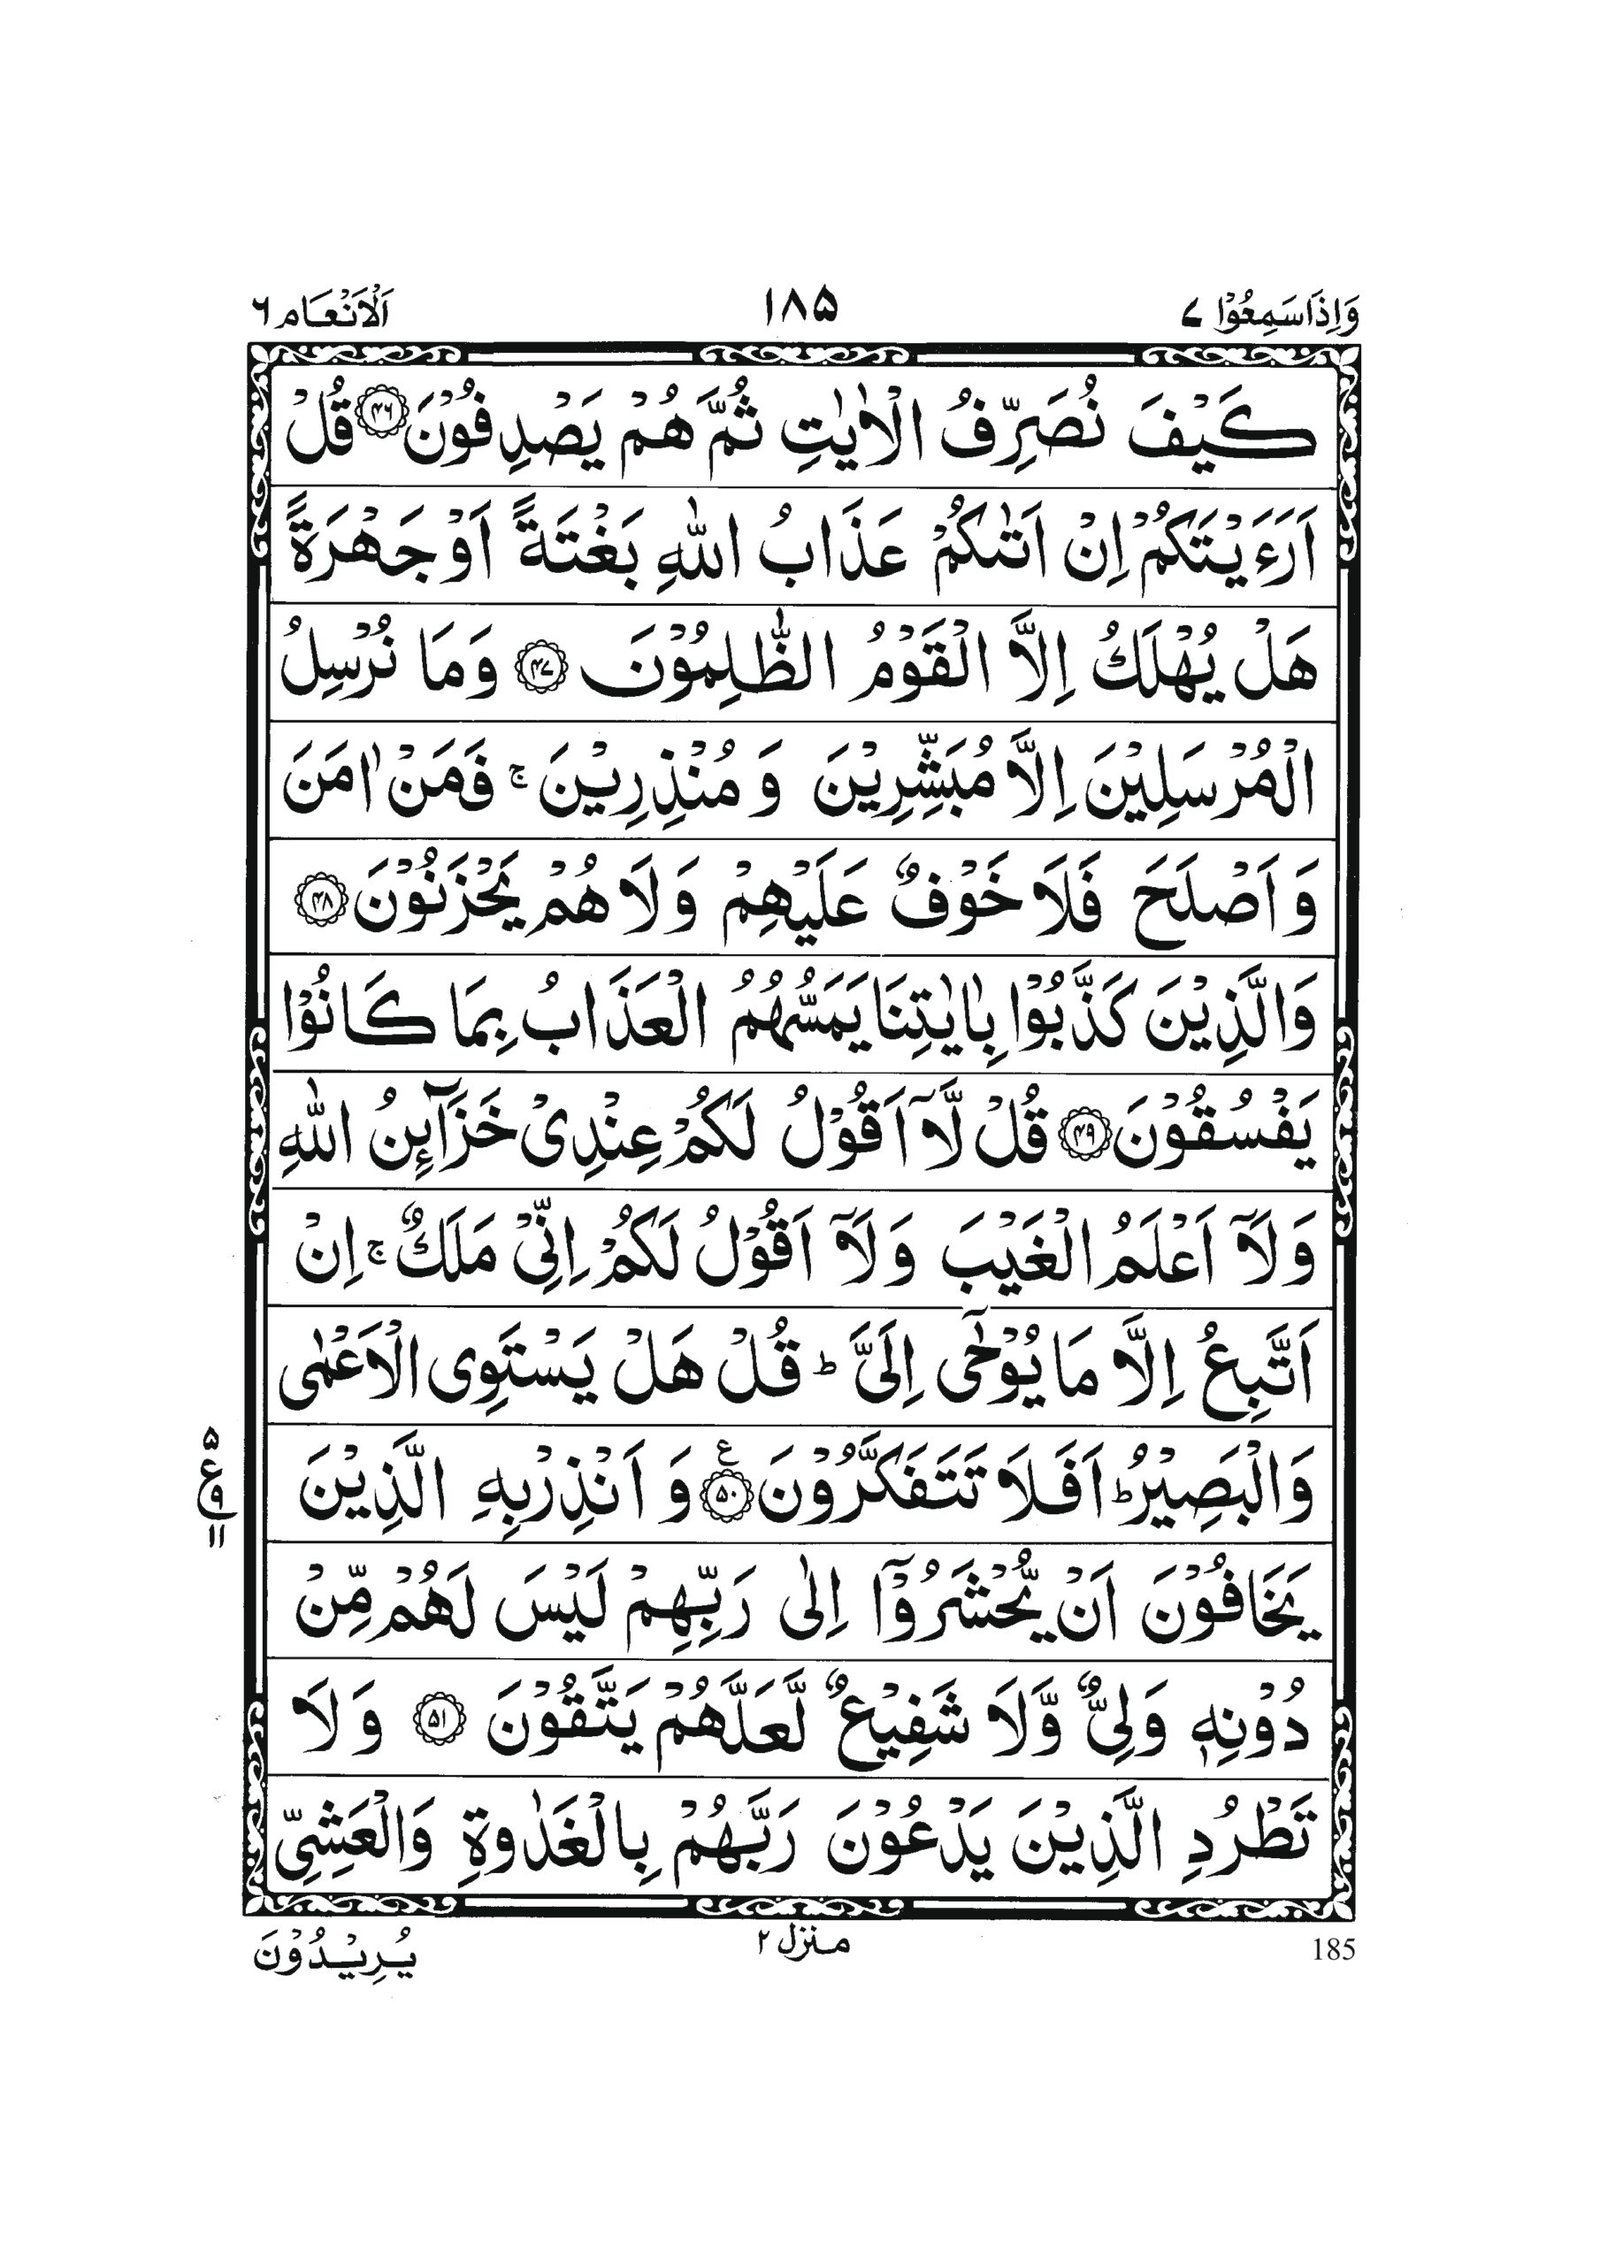 وَاِذَاسَمِعُوْا ٧
١٨٥
اَلْاَنْعَام ٦
كَيْفَ نُصَرِّفُ الْاٰيٰتِ ثُمَّ هُمْ يَصْدِفُوْنَ ﴿٤٦﴾ قُلْ
اَرَءَيْتَكُمْ اِنْ اَتٰىكُمْ عَذَابُ اللّٰهِ بَغْتَةً اَوْ جَهْرَةً
هَلْ يُهْلَكُ اِلَّا الْقَوْمُ الظّٰلِمُوْنَ ﴿٤٧﴾ وَمَا نُرْسِلُ
الْمُرْسَلِيْنَ اِلَّا مُبَشِّرِيْنَ وَ مُنْذِرِيْنَ ۚ فَمَنْ اٰمَنَ
وَ اَصْلَحَ فَلَا خَوْفٌ عَلَيْهِمْ وَ لَا هُمْ يَحْزَنُوْنَ ﴿٤٨﴾
وَالَّذِيْنَ كَذَّبُوْا بِاٰيٰتِنَا يَمَسُّهُمُ الْعَذَابُ بِمَا كَانُوْا
يَفْسُقُوْنَ ﴿٤٩﴾ قُلْ لَّاۤ اَقُوْلُ لَكُمْ عِنْدِيْ خَزَآئِنُ اللّٰهِ
وَ لَاۤ اَعْلَمُ الْغَيْبَ وَ لَاۤ اَقُوْلُ لَكُمْ اِنِّيْ مَلَكٌ ۚ اِنْ
اَتَّبِعُ اِلَّا مَا يُوْحٰۤى اِلَيَّ ؕ قُلْ هَلْ يَسْتَوِى الْاَعْمٰى
وَالْبَصِيْرُ ؕ اَفَلَا تَتَفَكَّرُوْنَ ﴿٥٠﴾ ع وَ اَنْذِرْ بِهِ الَّذِيْنَ
٥
ع ٩
١١
يَخَافُوْنَ اَنْ يُّحْشَرُوْۤا اِلٰى رَبِّهِمْ لَيْسَ لَهُمْ مِّنْ
دُوْنِهٖ وَلِيٌّ وَّلَا شَفِيْعٌ لَّعَلَّهُمْ يَتَّقُوْنَ ﴿٥١﴾ وَ لَا
تَطْرُدِ الَّذِيْنَ يَدْعُوْنَ رَبَّهُمْ بِالْغَدٰوةِ وَالْعَشِيِّ
185
منزل ٢
يُرِيْدُوْنَ